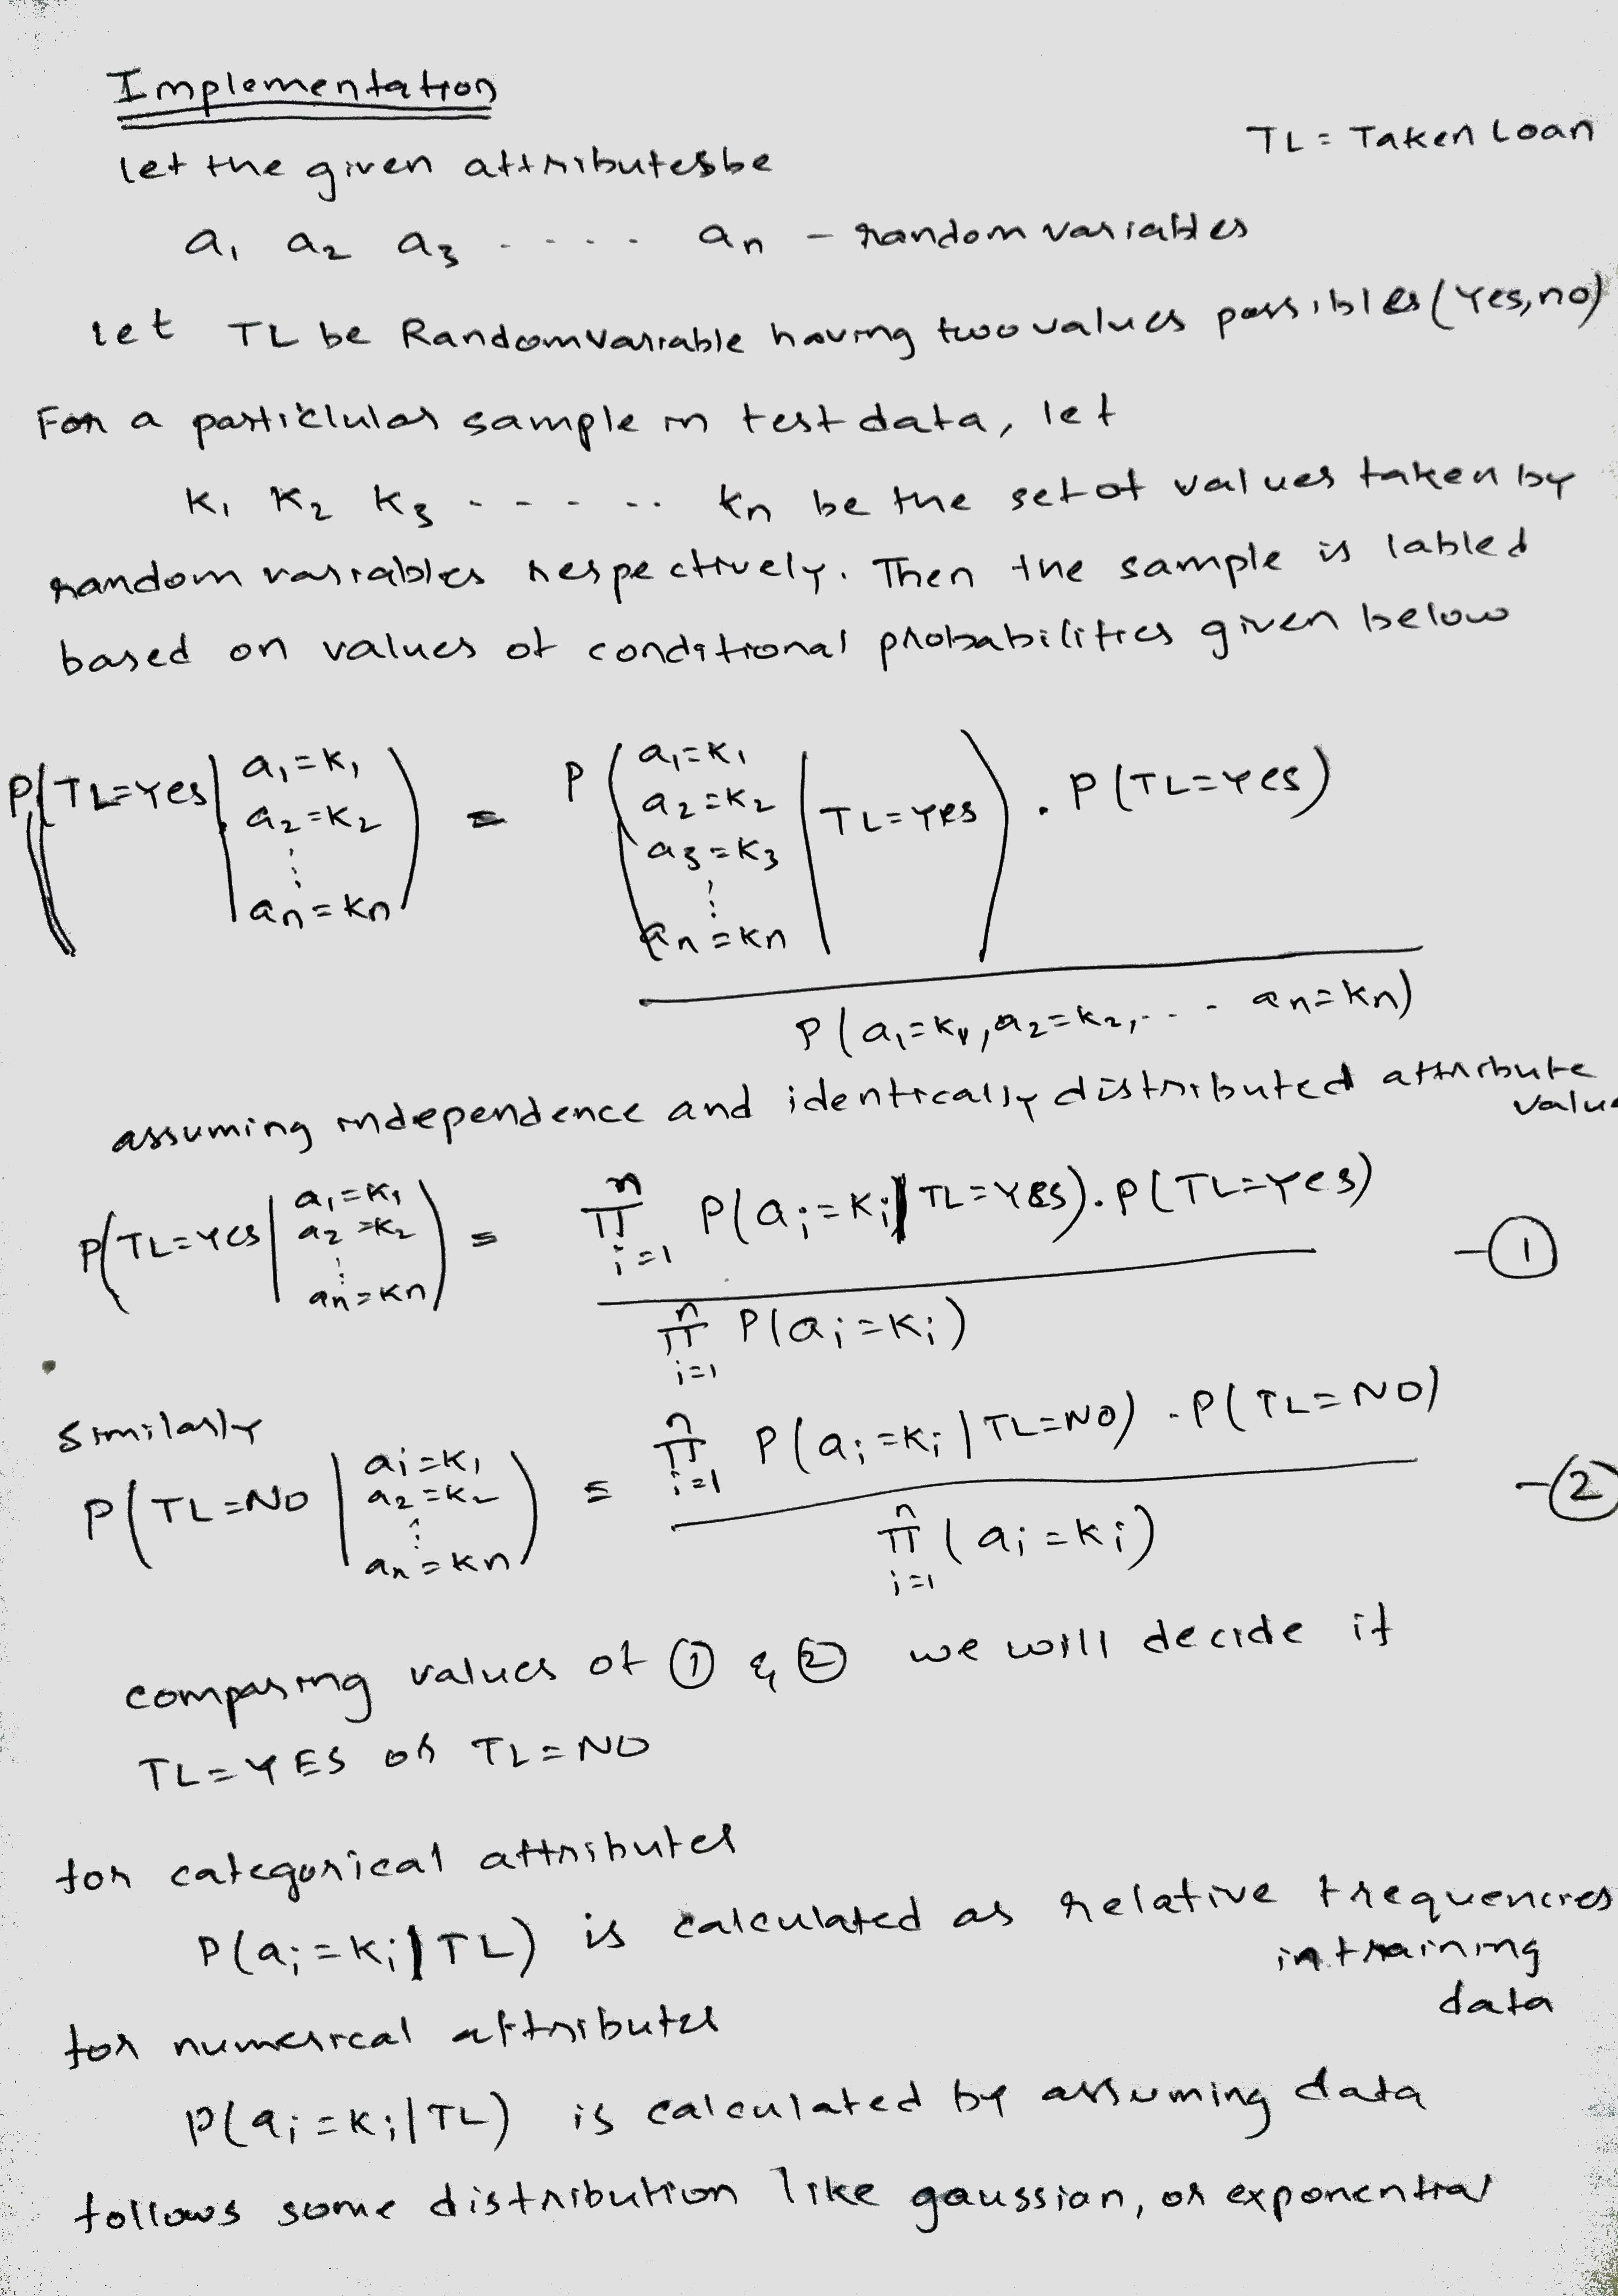 Implementation
TL = Taken Loan
let the given attributes be
a1 a2 a3 - - - - . an - random variables
let TL be Random Variable having two values possibles (Yes, no)
For a particlular sample in test data, let
K1 K2 K3 - - - - .. Kn be the set of values taken by
random variables respectively. Then the sample is labled
based on values of conditional probabilities given below
P(TL=Yes | a1=K1 a2=K2 ⋮ an=Kn) = P(a1=K1 a2=K2 a3=K3 ⋮ an=Kn | TL=YES) . P(TL=Yes)
P(a1=K1, a2=K2, - - - an=Kn)
assuming independence and identically distributed attribute
P(TL=YES | a1=K1 a2=K2 ⋮ an=Kn) = n π i=1 P(ai=Ki | TL=YES). P(TL=Yes) - ①
n π i=1 P(ai=Ki)
Similarly
P(TL=NO | ai=K1 a2=K2 ⋮ an=Kn) = n π i=1 P(ai=Ki | TL=NO) . P(TL=NO) - ②
n π i=1 (ai=Ki)
comparing values of ① & ② we will decide if
TL=YES or TL=NO
for categorical attributes
P(ai=Ki | TL) is calculated as relative frequencies
in training
data
for numerical attributes
P(ai=Ki | TL) is calculated by assuming data
follows some distribution like gaussian, or exponential